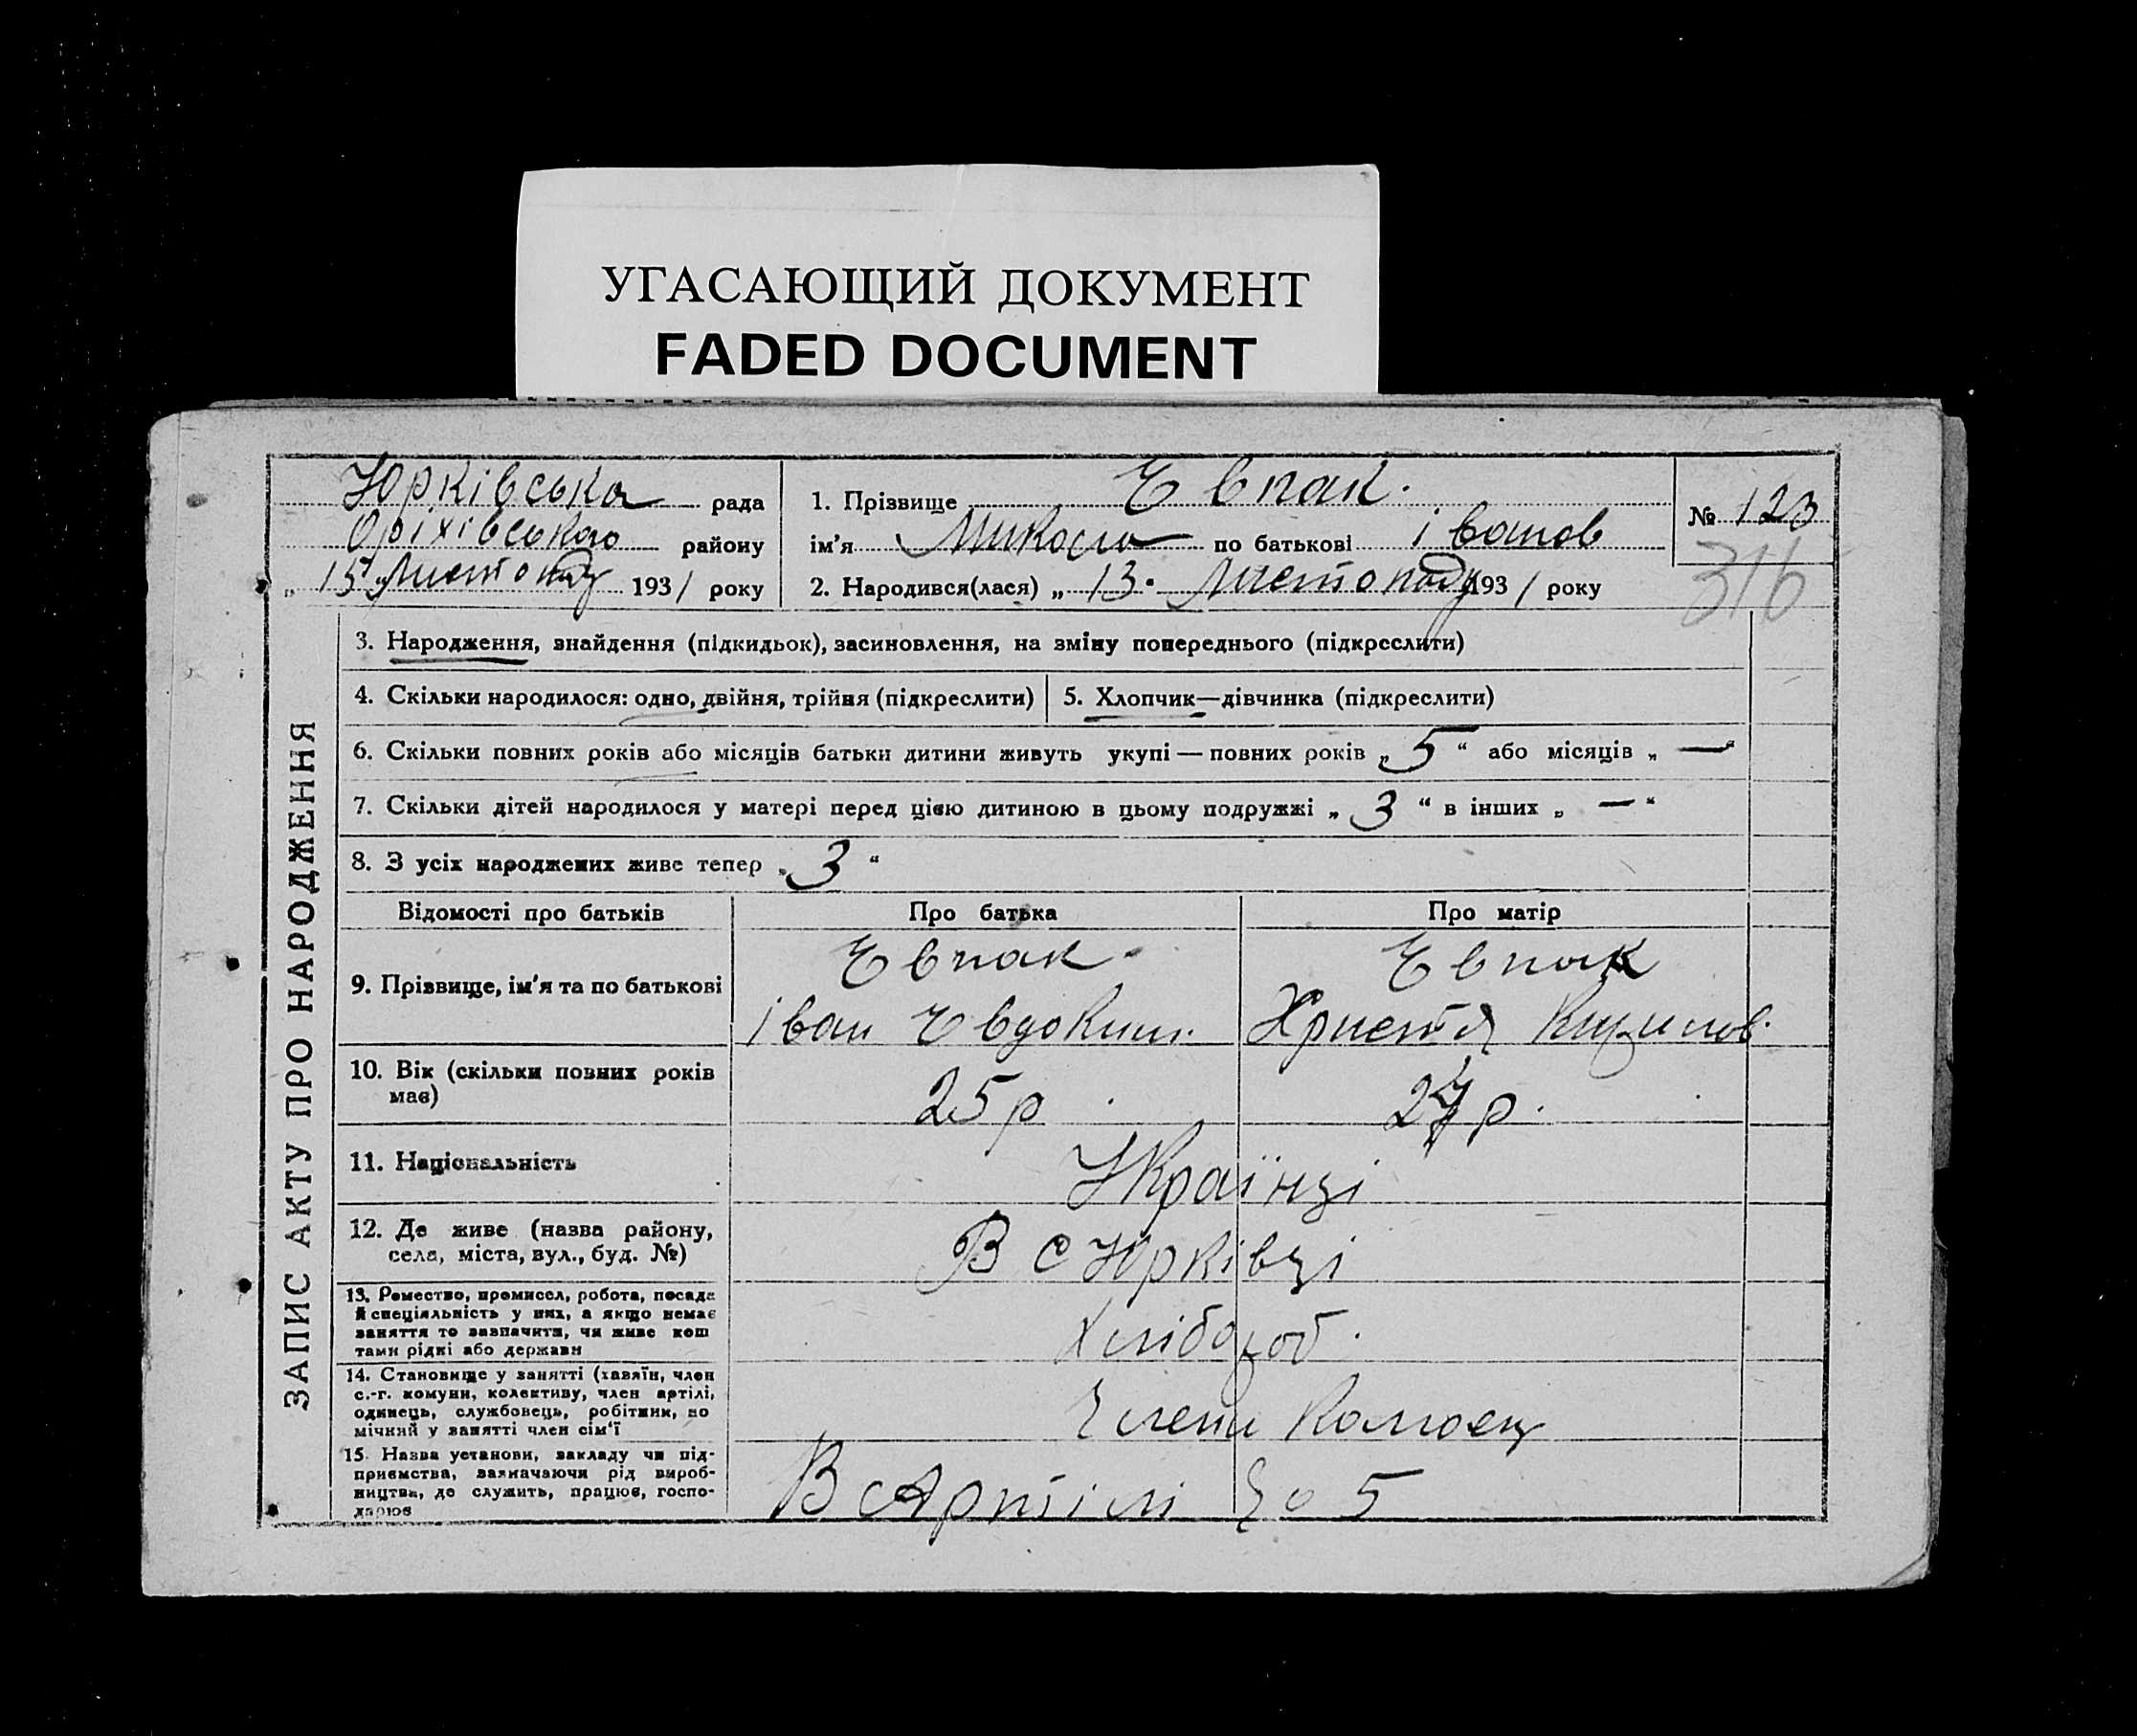 УГАСАЮЩИЙ ДОКУМЕНТ
FADED DOCUMENT
Юрківська рада
Оріхівського району
„ 15 „ Листопаду 1931 року
1. Прізвище Євпак.
ім'я Микола по батькові іванов
2. Народився(лася) „ 13. Листопаду 1931 року
№ 123
316
ЗАПИС АКТУ ПРО НАРОДЖЕННЯ
3. Народження, знайдення (підкидьок), засиновлення, на зміну попереднього (підкреслити)
4. Скільки народилося: одно, двійня, трійня (підкреслити)
5. Хлопчик—дівчинка (підкреслити)
6. Скільки повних років або місяців батьки дитини живуть укупі — повних років „ 5 “ або місяців „ — “
7. Скільки дітей народилося у матері перед цією дитиною в цьому подружжі „ 3 “ в інших „ — “
8. З усіх народжених живе тепер „ 3 “
Відомості про батьків
Про батька
Про матір
9. Прізвище, ім'я та по батькові
Євпак
іван Євдоким.
Євпак
Христя Кирилов.
10. Вік (скільки повних років
має)
25 р
р.
11. Національність
Українці
12. Де живе (назва району,
села, міста, вул., буд. №)
В с Юрківці
13. Ремество, промисел, робота, посада
й спеціяльність у них, а якщо немає
заняття то зазначити, чи живе кош
тами рідні або держави
Хлібороб.
14. Становище у занятті (хазяїн, член
с.-г. комуни, колективу, член артілі,
одинець, службовець, робітник, по
мічний у занятті член сім'ї
Члени
15. Назва установи, закладу чи під-
приємства, зазначаючи рід вироб-
ництва, де служить, працює, госпо-
дарює
В с Артілі 5